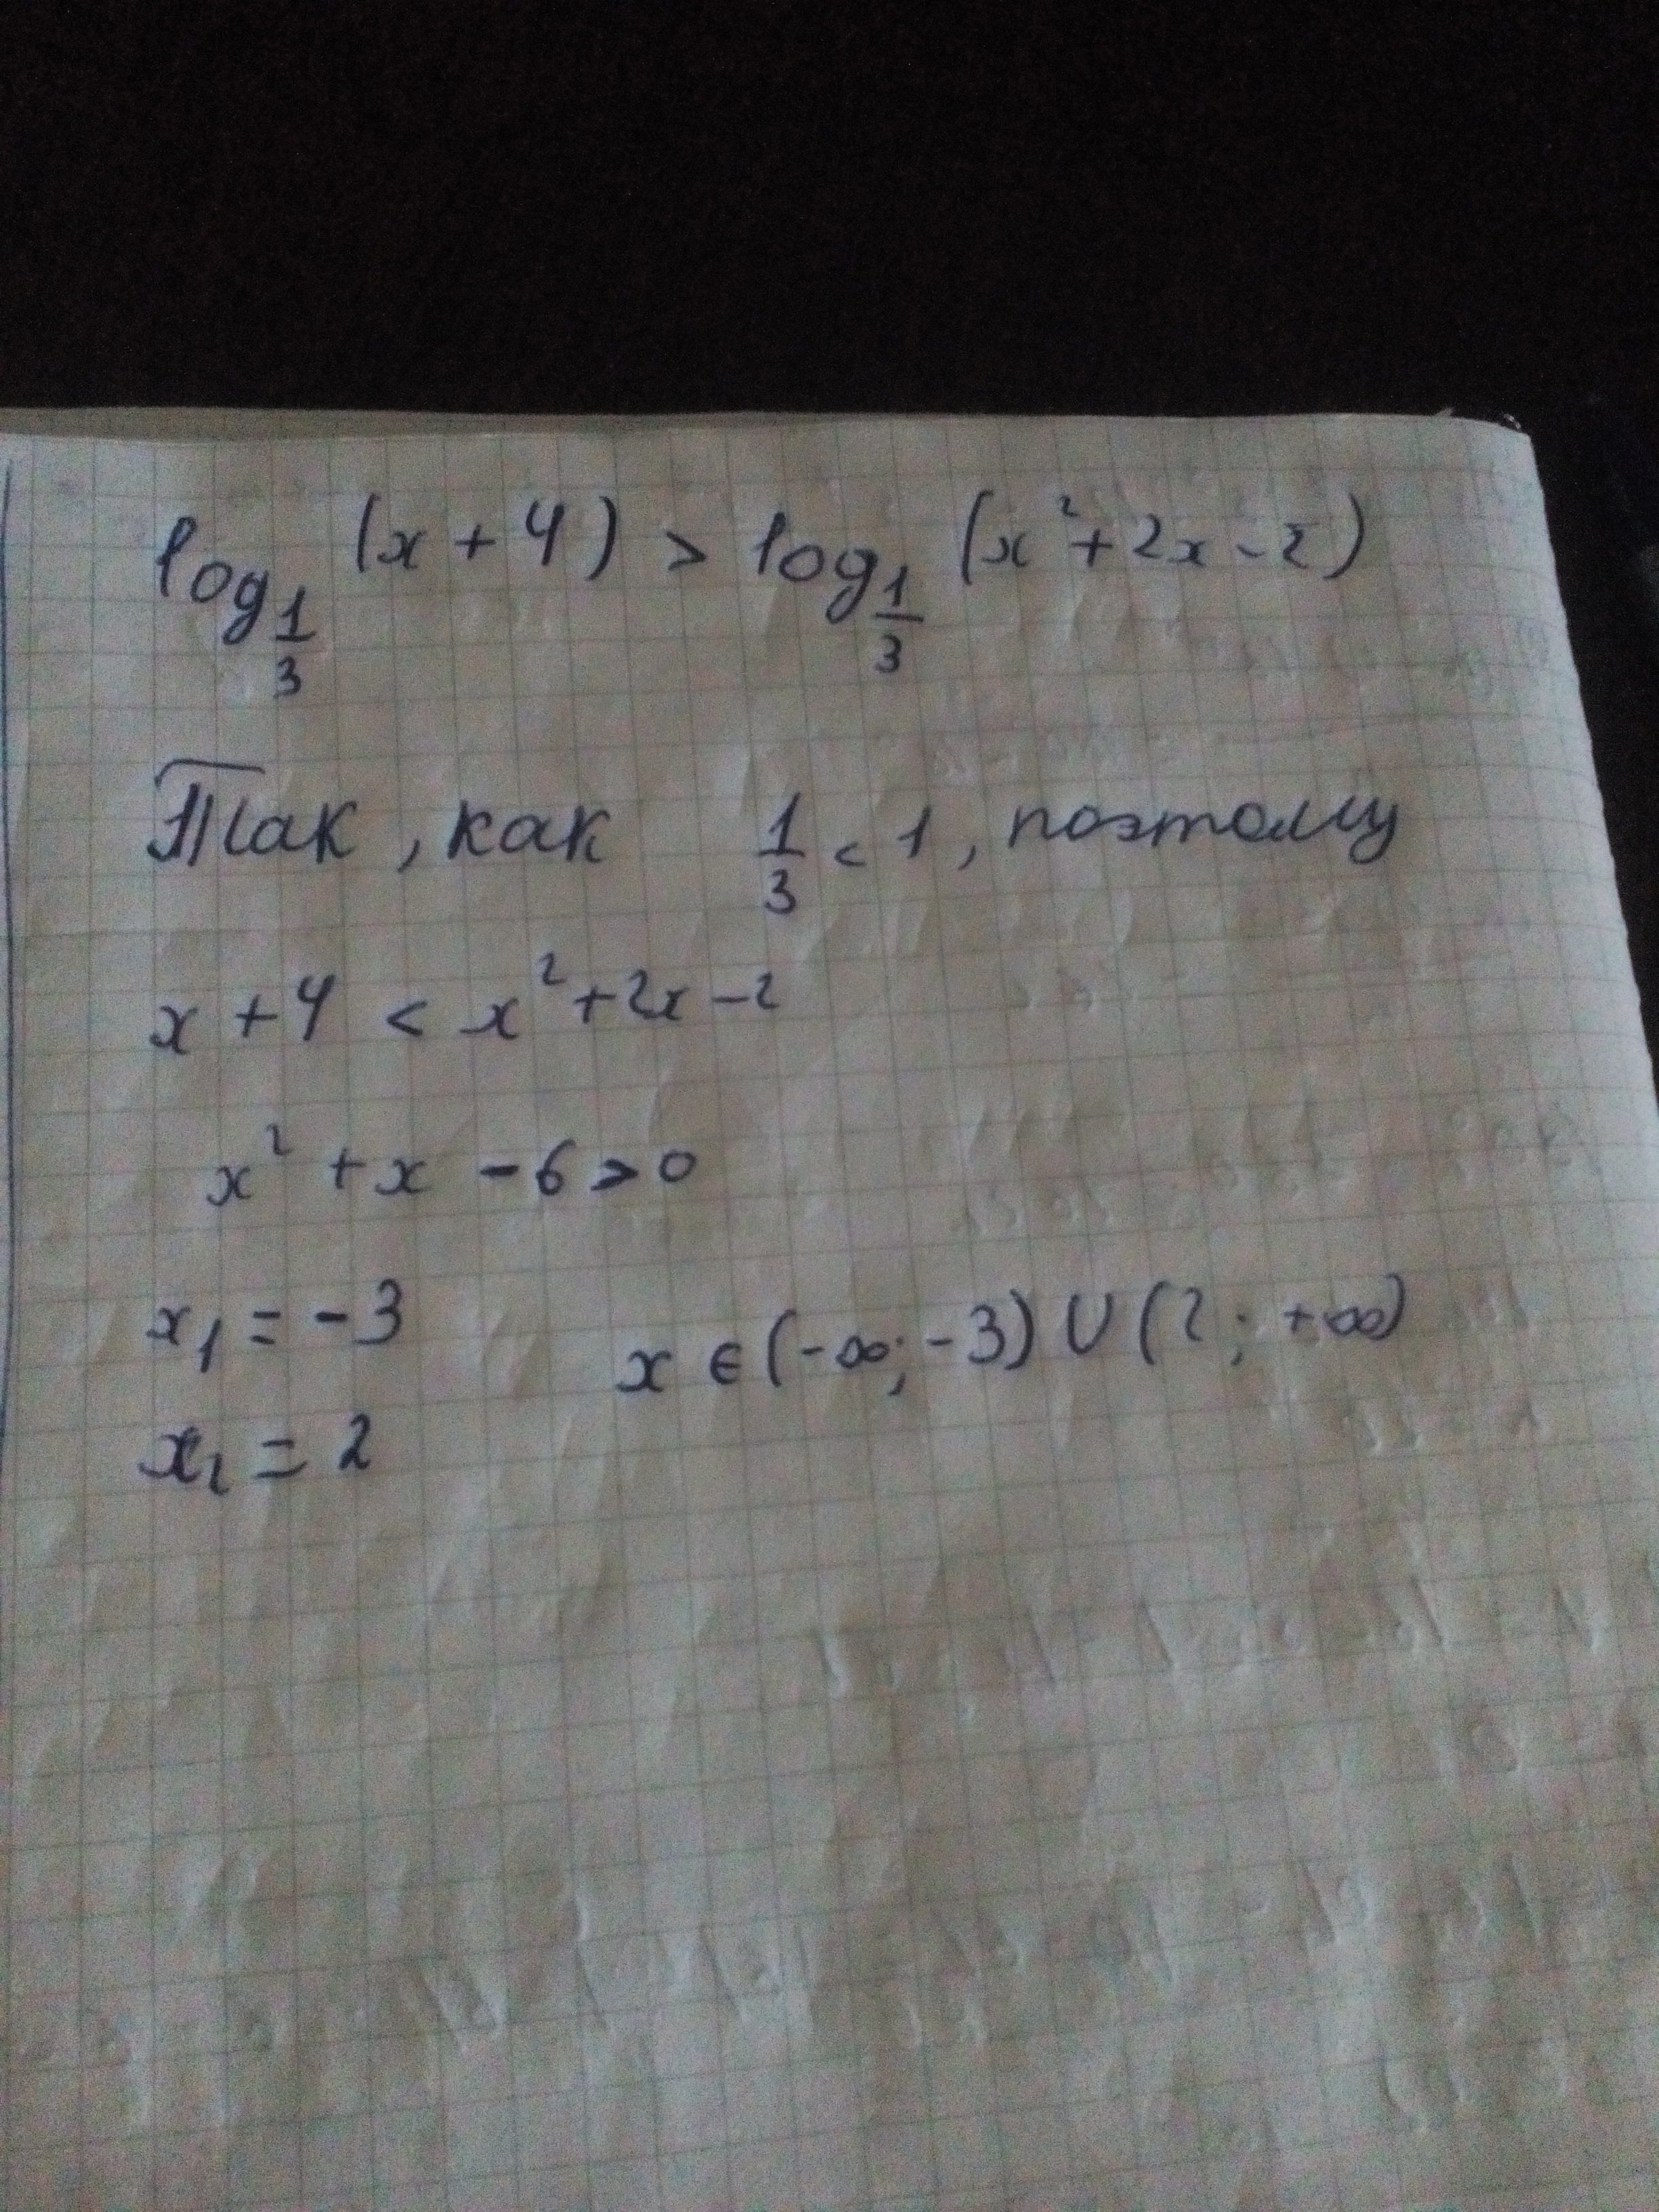 log_{1/3} (x + 4) > log_{1/3} (x² + 2x - 2)
Так, как 1/3 < 1, поэтому
x + 4 < x² + 2x - 2
x² + x - 6 > 0
x₁ = -3 x ∈ (-∞; -3) ∪ (2; +∞)
x₂ = 2